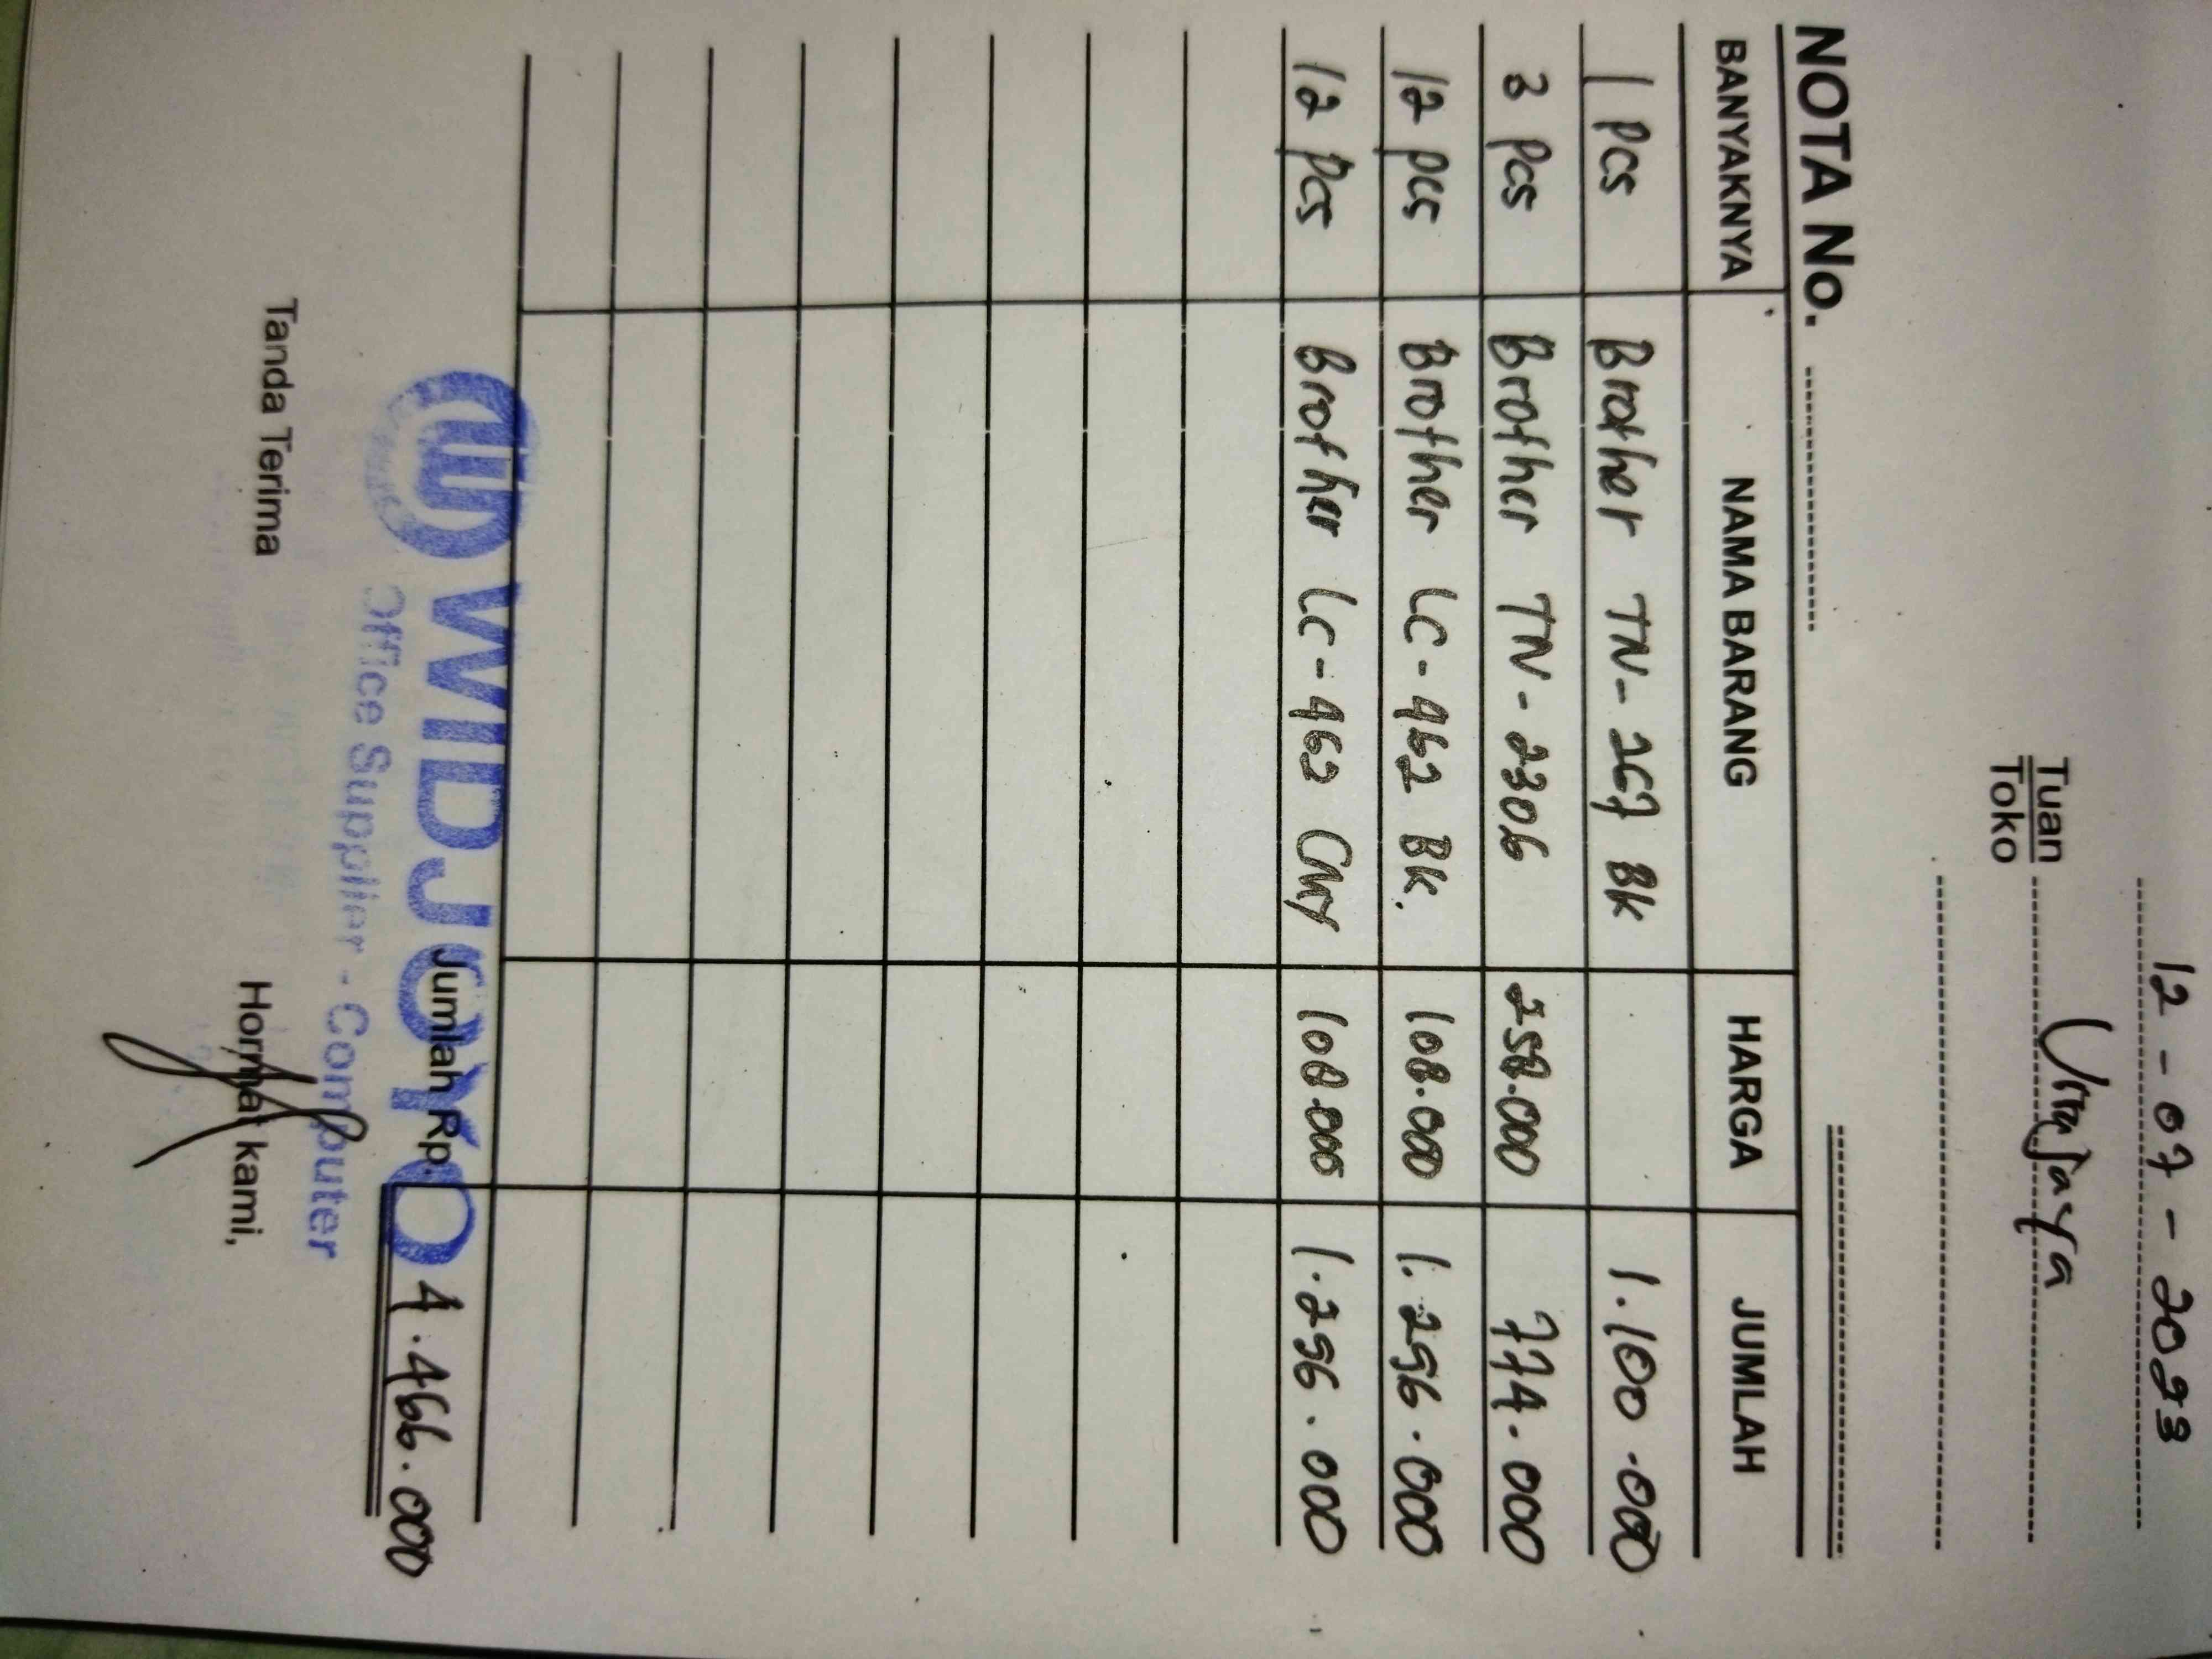 12 - 07 - 2023
Tuan
Toko
NOTA No.
BANYAKNYA NAMA BARANG HARGA JUMLAH
1 pcs Brother TN-267 BK 1.100.000
3 pcs Brother TN-2306 258.000 774.000
12 pcs Brother LC-462 BK. 108.000 1.296.000
12 pcs Brother LC-462 CMY 108.000 1.296.000
Jumlah Rp. 4.466.000
WIDJOYO
Office Supplier - Computer
Tanda Terima Hormat kami,